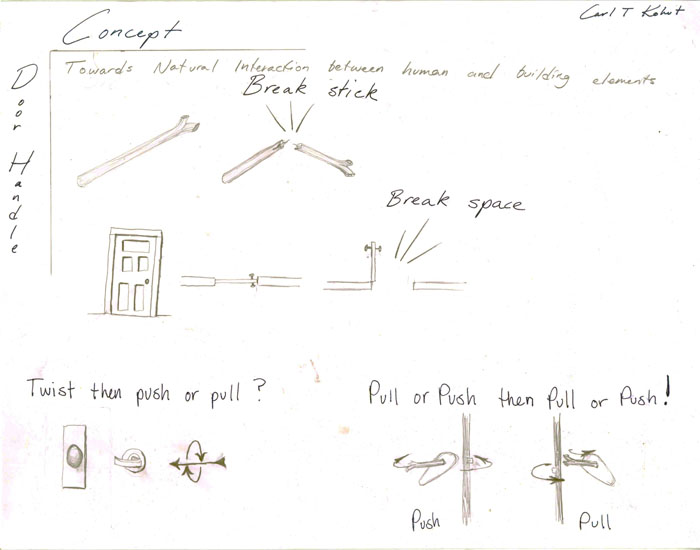 Carl T Kohut
Concept
Door Handle
Towards Natural Interaction between human and building elements
Break stick
Break space
Twist then push or pull ?
Pull or Push then Pull or Push!
Push
Pull